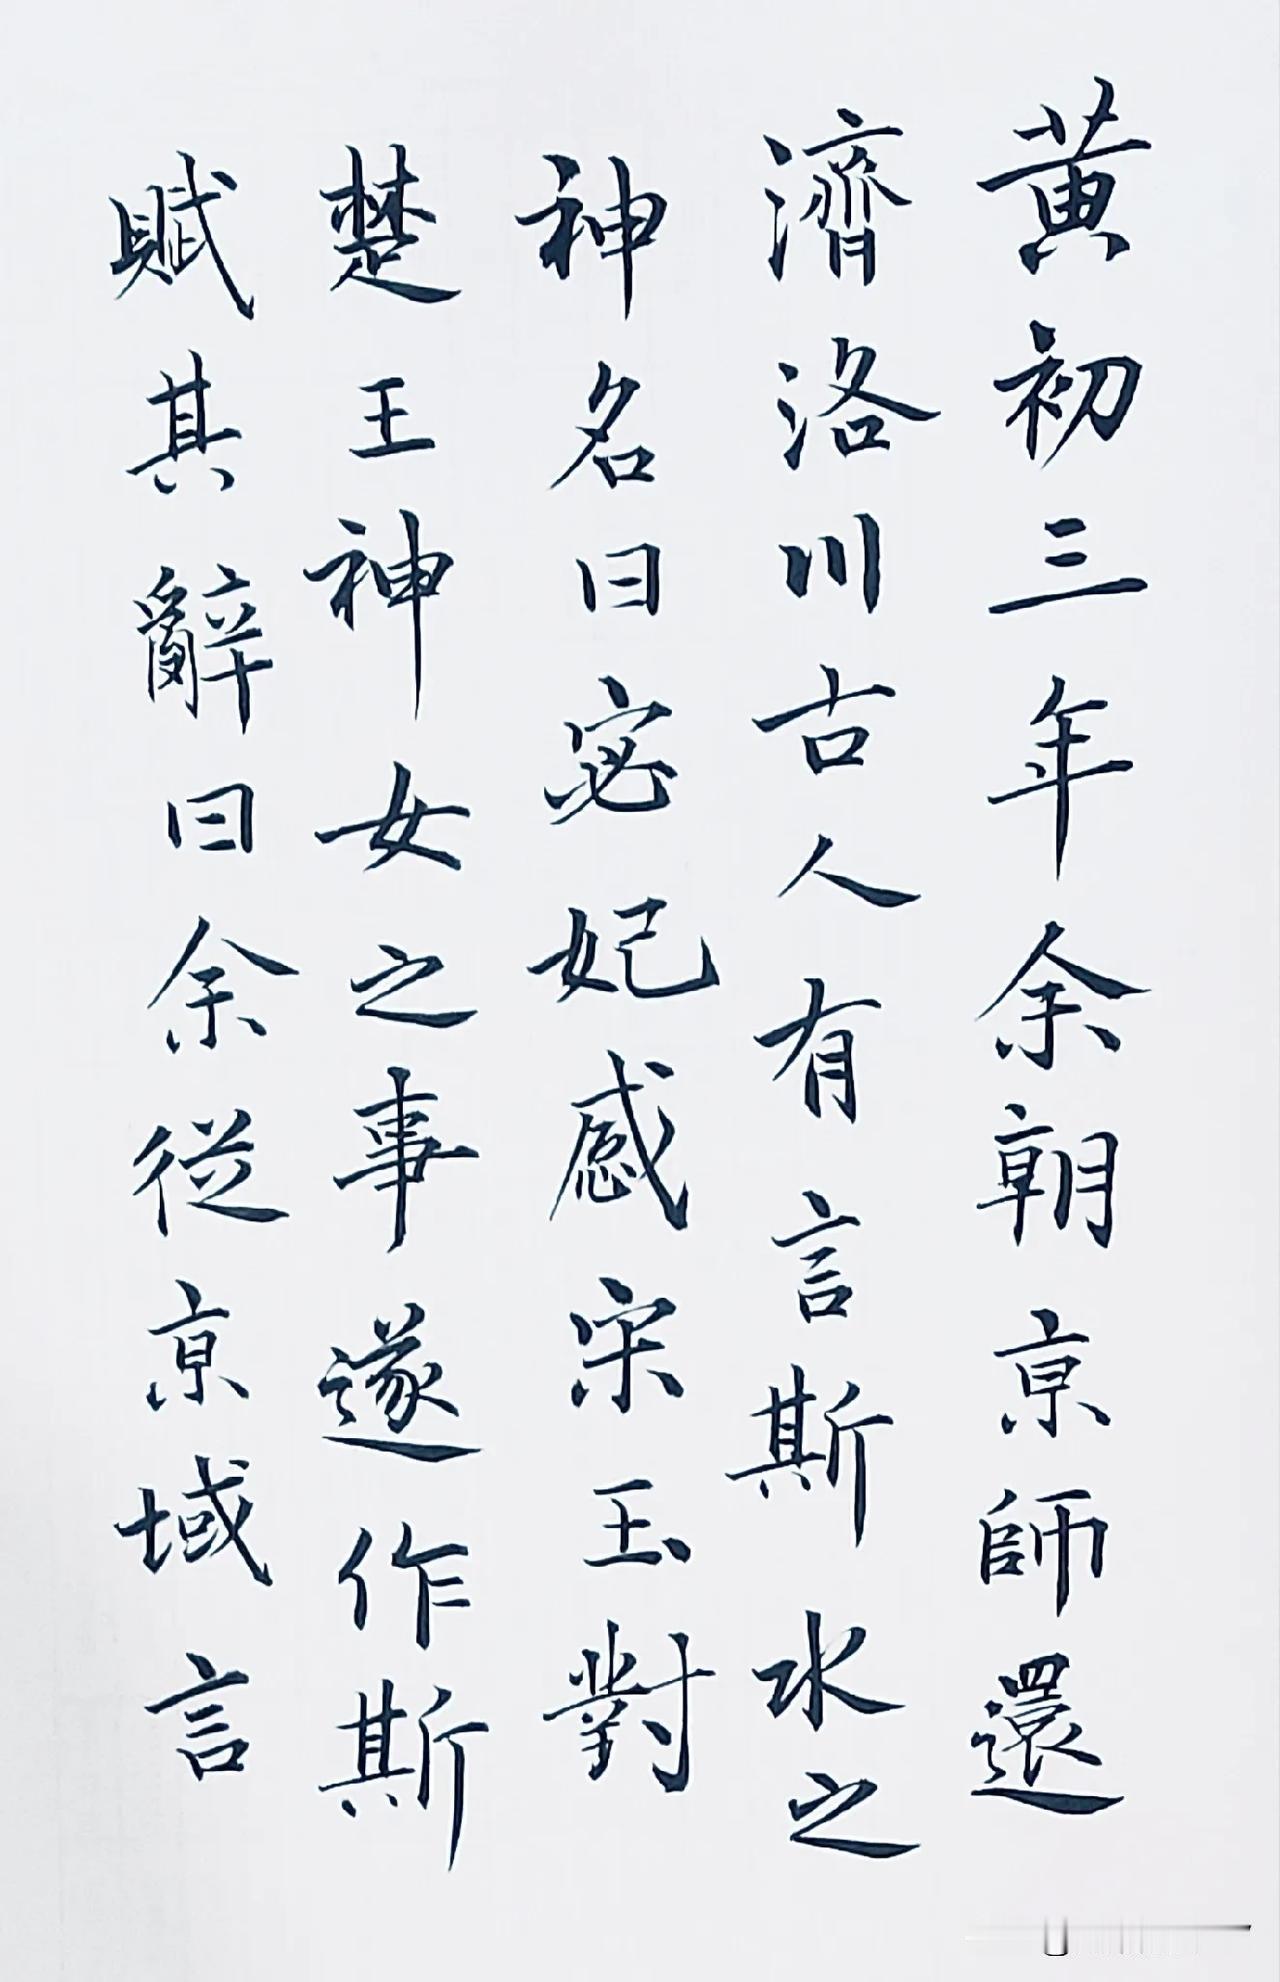 黄初三年余朝京師還
濟洛川古人有言斯水之
神名曰宓妃感宋玉對
楚王神女之事遂作斯
賦其辭曰余従京域言